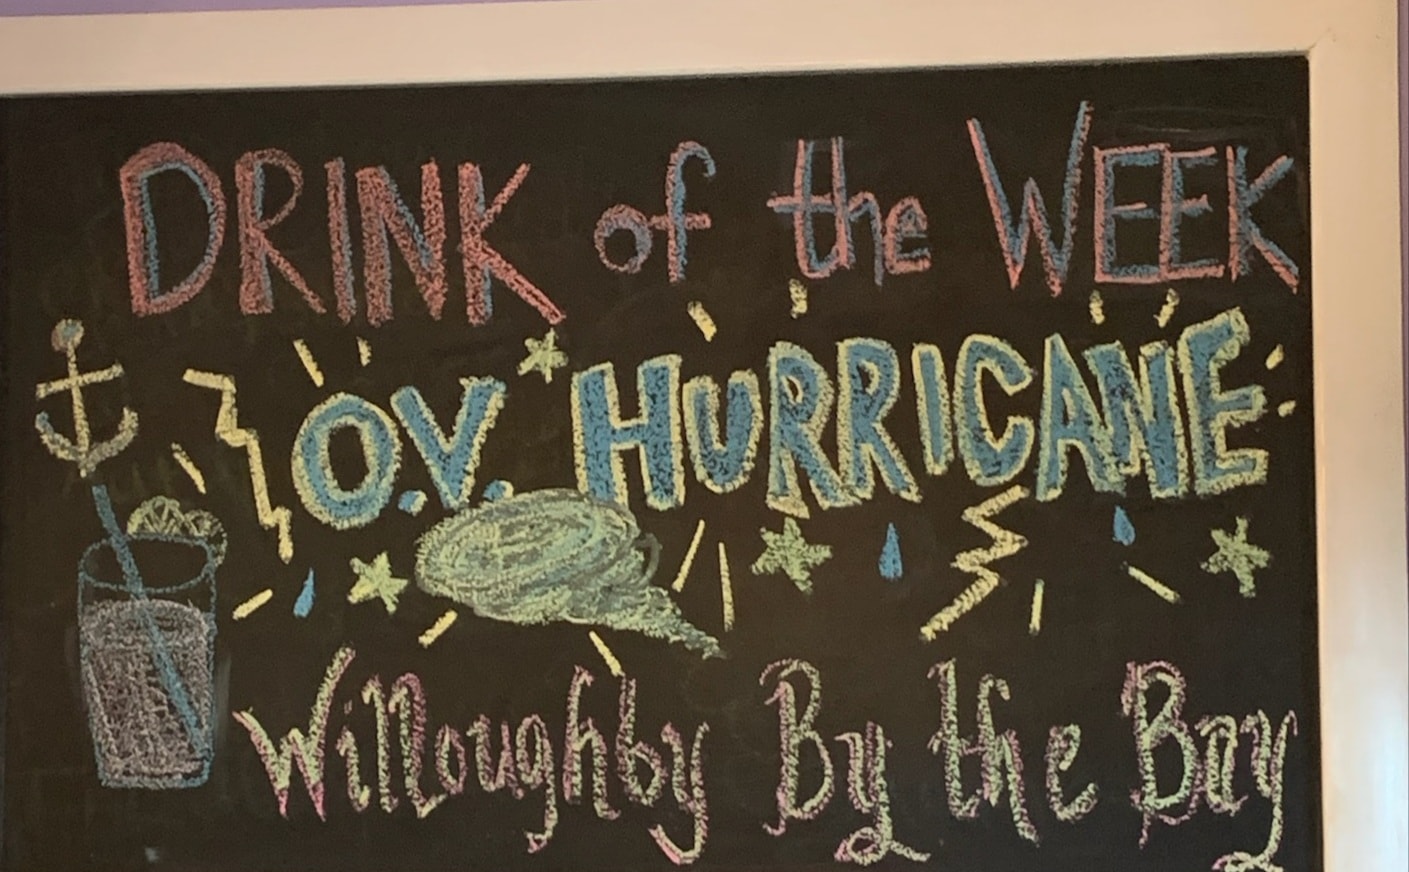 DRINK of the WEEK
O.V. HURRICANE
Willoughby By the Bay